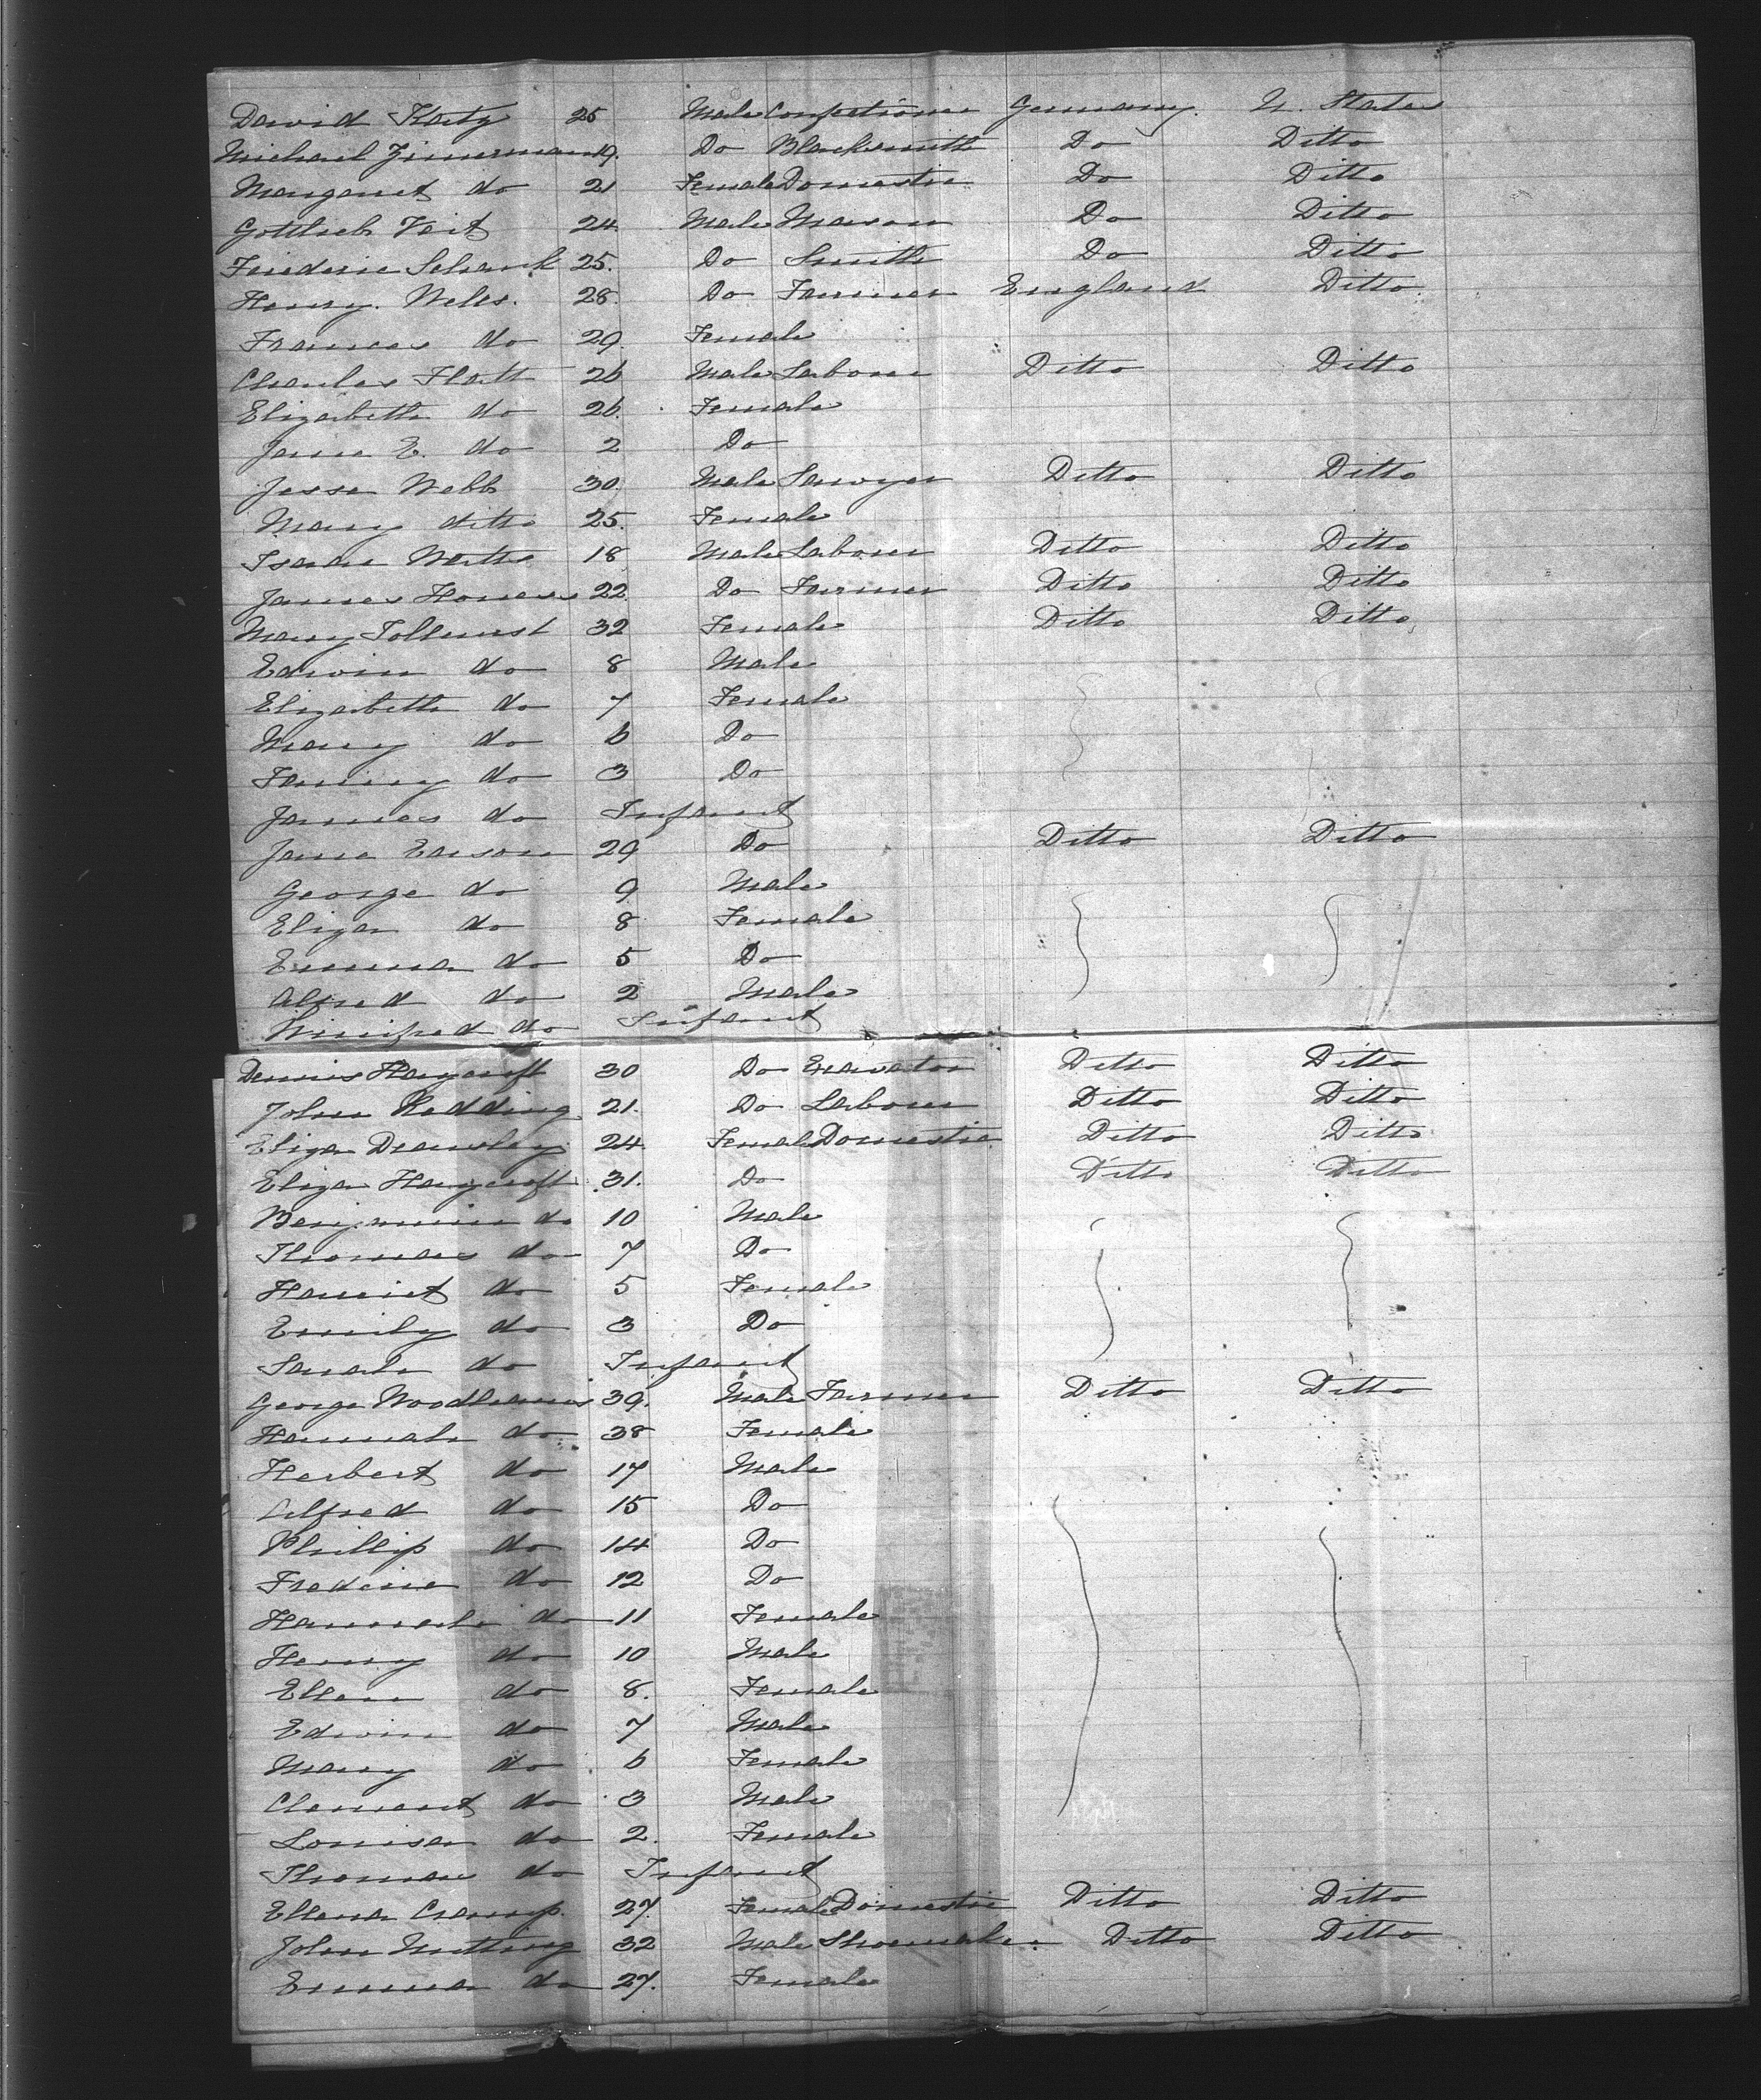 David Katz 25 Male Confectioner Germany. U. States
Michael Zimerman 19. Do Blacksmith Do Ditto
Margaret do 21 Female Domestic Do Ditto
Gottlieb Veit 24 Male Mason Do Ditto
Frederic Schank 25. Do Smith Do Ditto
Henry. Wells. 28. Do Farmer England Ditto
Frances do 29. Female
Charles Flatt 26 Male Labour Ditto Ditto
Elizabeth do 26. Female
Jane E. do 2 Do
Jesse Webb 30. Male Sawyer Ditto Ditto
Mary ditto 25. Female
Isaac Watts 18 Male Labour Ditto Ditto
James Honess 22 Do Farmer Ditto Ditto
Mary Tollhurst 32 Female Ditto Ditto
Edwin do 8 Male
Elizabeth do 7 Female
Mary do 6 Do
Fanny do 3 Do
James do Infant
Jane Eason 29 Do Ditto Ditto
George do 9 Male
Eliza do 8 Female
Emma do 5 Do
Alfred do 2 Male
Winifred do Infant
Dennis Haycroft 30 Do Excavator Ditto Ditto
John Redding 21. Do Labour Ditto Ditto
Eliza 24 Female Domestic Ditto Ditto
Eliza Haycroft 31. Do Ditto Ditto
Benjamin do 10 Male
Thomas do 7 Do
Harriet do 5 Female
Emily do 3 Do
Sarah do Infant
George Woodhams 39. Male Farmer Ditto Ditto
Hannah do 38 Female
Herbert do 17 Male
Alfred do 15 Do
Phillip do 14 Do
Frederic do 12 Do
Hannah do 11 Female
Henry do 10 Male
Ellen do 8. Female
Edwin do 7 Male
Mary do 6 Female
Clement do 3 Male
Louisa do 2. Female
Thomas do Infant
Ellena Cramp. 27. Female Domestic Ditto Ditto
John Nutting 32 Male Shoemaker Ditto Ditto
Emma do 27. Female